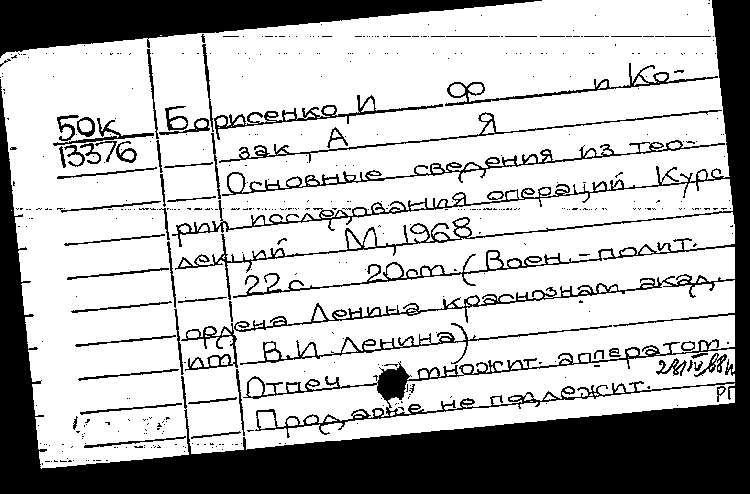 50к
13376
Борисенко, И Ф и Ко-
зак, А Я
Основные сведения из тео-
рии последования операций. Курс
лекций. М., 1968.
22 с. 20 см. (Воен.-полит.
ордена Ленина краснознам. акад.
им В.И. Ленина).
Отпеч множит. аппаратом.
Продаже не подлежит.
РГ